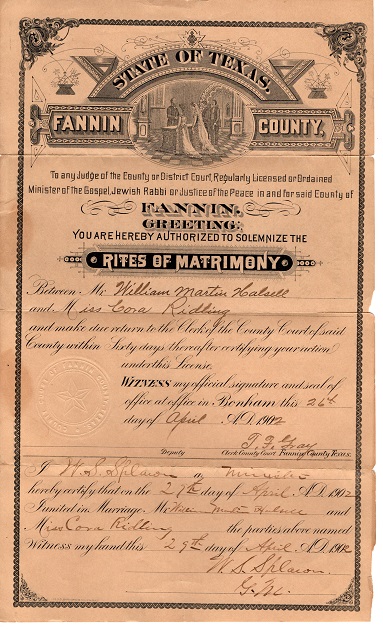 STATE OF TEXAS.
FANNIN COUNTY,
To any Judge of the County or District Court, Regularly Licensed or Ordained
Minister of the Gospel, Jewish Rabbi or Justice of the Peace in and for said County of
FANNIN.
GREETING:
YOU ARE HEREBY AUTHORIZED TO SOLEMNIZE THE
RITES OF MATRIMONY
Between Mr. William Martin Halsell
and Miss Cora Ridling
and make due return to the Clerk of the County Court of said
County within Sixty days thereafter certifying your action
under this License.
Witness my official signature and seal of
office at office in Bonham this 26th
day of April A.D. 1902
T. F. Gray
Deputy Clerk County Court Fannin County, Texas.
I W. S. Splawn a minister
hereby certify that on the 27th day of April A.D. 1902
I united in Marriage Mr William Martin Halsell and
Miss Cora Ridling the parties above named
Witness my hand this 29th day of April A.D. 1902
W. S. Splawn